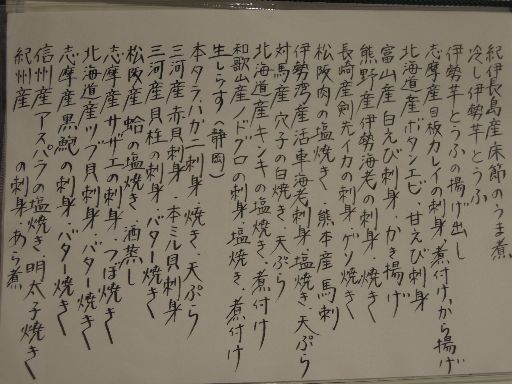 紀伊長島産床節のうま煮
冷し伊勢芋とうふ
伊勢芋とうふの揚げ出し
志摩産目板カレイの刺身・煮付け・から揚げ
北海道産ボタンエビ・甘えび刺身
富山産白えび刺身・かき揚げ
熊野産伊勢海老の刺身・焼き
長崎産剣先イカの刺身・ゲソ焼き
松阪肉の塩焼き・熊本産馬刺
伊勢湾産活車海老刺身・塩焼き・天ぷら
対馬産穴子の白焼き・天ぷら
北海道産キンキの塩焼き・煮付け
和歌山産ドグロの刺身・塩焼き・煮付け
生しらす(静岡)
本タラバガニ刺身・焼き・天ぷら
三河産赤貝刺身・本ミル貝刺身
三河産貝柱の刺身・バター焼き
松阪産蛤の塩焼き・酒蒸し
志摩産サザエの刺身・つぼ焼き
北海道産ツブ貝刺身・バター焼き
志摩産黒鮑の刺身・バター焼き
信州産アスパラの塩焼き・明太子焼き
紀州産 の刺身・あら煮